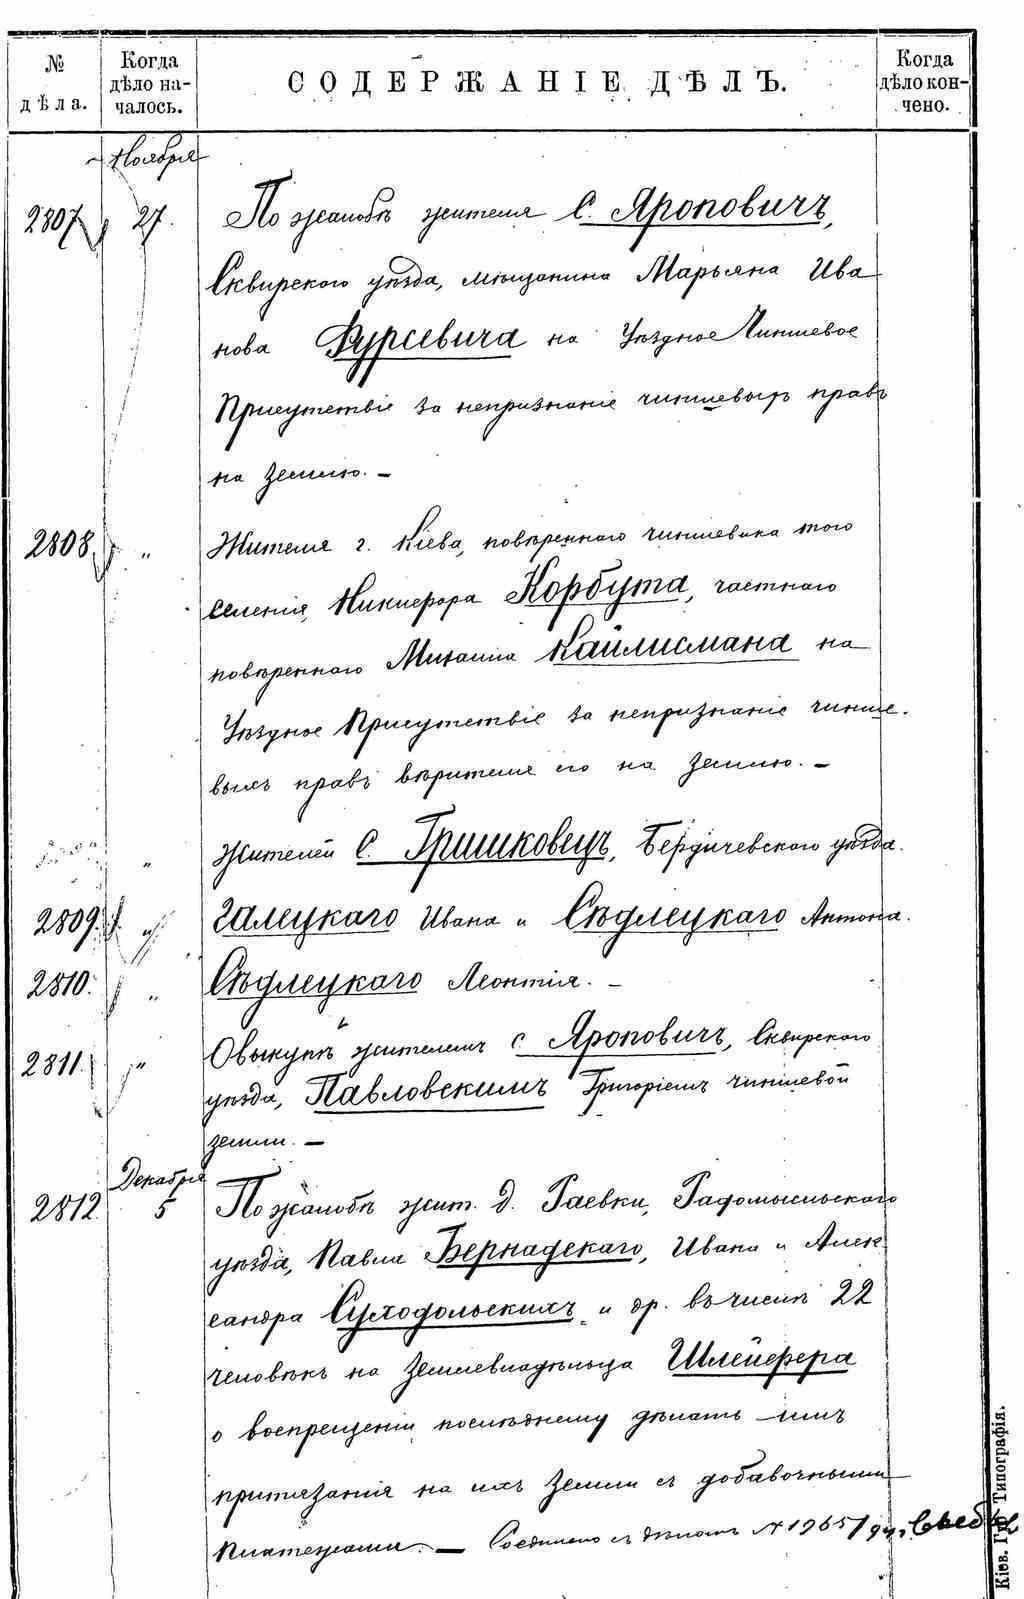 № дѣла.
Когда дѣло на-
чалось.
СОДЕРЖАНІЕ ДѢЛЪ.
Когда
дѣло кон-
чено.
Ноября
2807 27. По жалобѣ жителя с. Яроповичъ,
Сквирскаго уѣзда, мѣщанина Марьяна Ива
нова Фурсевича на Уѣздное Чиншевое
Присутствіе за непризнаніе чиншевыхъ правъ
на землю. —
2808 „ Жителя г. Кіева, повѣреннаго чиншевика того
селенія, Никифора Корбута, частнаго
повѣреннаго Михаила Кайлисмана на
Уѣздное Присутствіе за непризнаніе чинше-
выхъ правъ вѣрителя его на землю. —
„ Жителей с. Гришковецъ, Бердичевскаго уѣзда.
2809. „ Галецкаго Ивана и Сѣдлецкаго Антона.
2810. „ Сѣдлецкаго Леонтія. —
2811. „ О выкупѣ жителемъ с. Яроповичъ, Сквирскаго
уѣзда, Павловскимъ Григоріемъ чиншевой
земли. —
Декабря
2812 5 По жалобѣ жит. д. Гаевки, Радомысльскаго
уѣзда, Павла Бернадскаго, Ивана и Алек
сандра Суходольскихъ и др. въ числѣ 22
человѣкъ на землевладѣльца Шлейфера
о воспрещеніи послѣднему дѣлать имъ
притязанія на ихъ земли съ добавочными
платежами. — Соединено съ дѣломъ № 1965/
Кіев. Губ. Типографія.